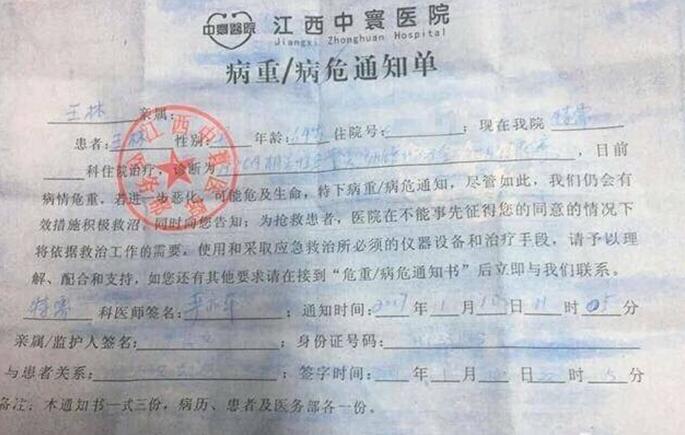 中寰醫院 江西中寰医院
Jiangxi Zhonghuan Hospital
病重/病危通知单
王林 亲属:
患者:王林 性别: 年龄: 住院号: ;现在我院
科住院治疗,诊断为 ,目前
病情危重,若进一步恶化,可能危及生命,特下病重/病危通知,尽管如此,我们仍会有
效措施积极救治,同时向您告知:为抢救患者,医院在不能事先征得您的同意的情况下
将依据救治工作的需要,使用和采取应急救治所必须的仪器设备和治疗手段,请予以理
解、配合和支持,如您还有其他要求请在接到“危重/病危通知书”后立即与我们联系。
科医师签名: ;通知时间:2017年1月10日 11时05分
亲属/监护人签名: ;身份证号码:
与患者关系: 签字时间: 年 月 时5分
备注:本通知书一式三份,病历、患者及医务部各一份。
江西中寰医院
医务部